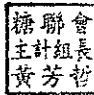 糖聯會
主計組長
黃芳哲